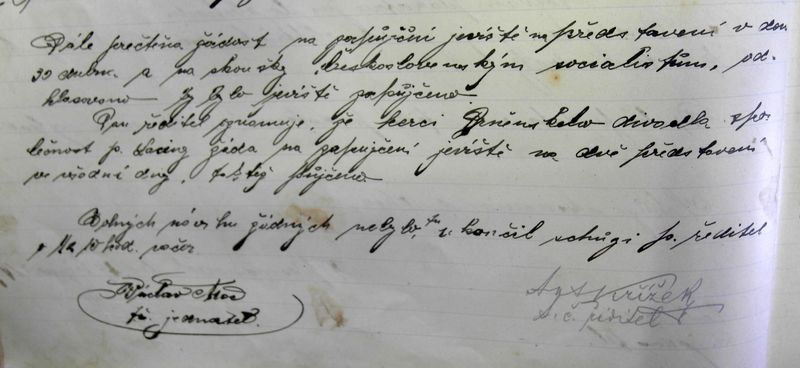 Dále přečtena žádost na zapůjční jeviště na představení v den
30 dubna a na skoušky československým socialistům, od-
hlasováno by bylo jeviště zapůjčeno.
Pan ředitel oznamuje, že herci divadla spo-
lečnost p. žáda na zapůjčení jeviště na dvě představení
ve všední dny, též půjčeno
Volných návrhu žádných nebylo, tu ukončil schůzi p. ředitel
v hod. večer
Václav
t.č. jednatel.
Ant Křížek
t.č. ředitel